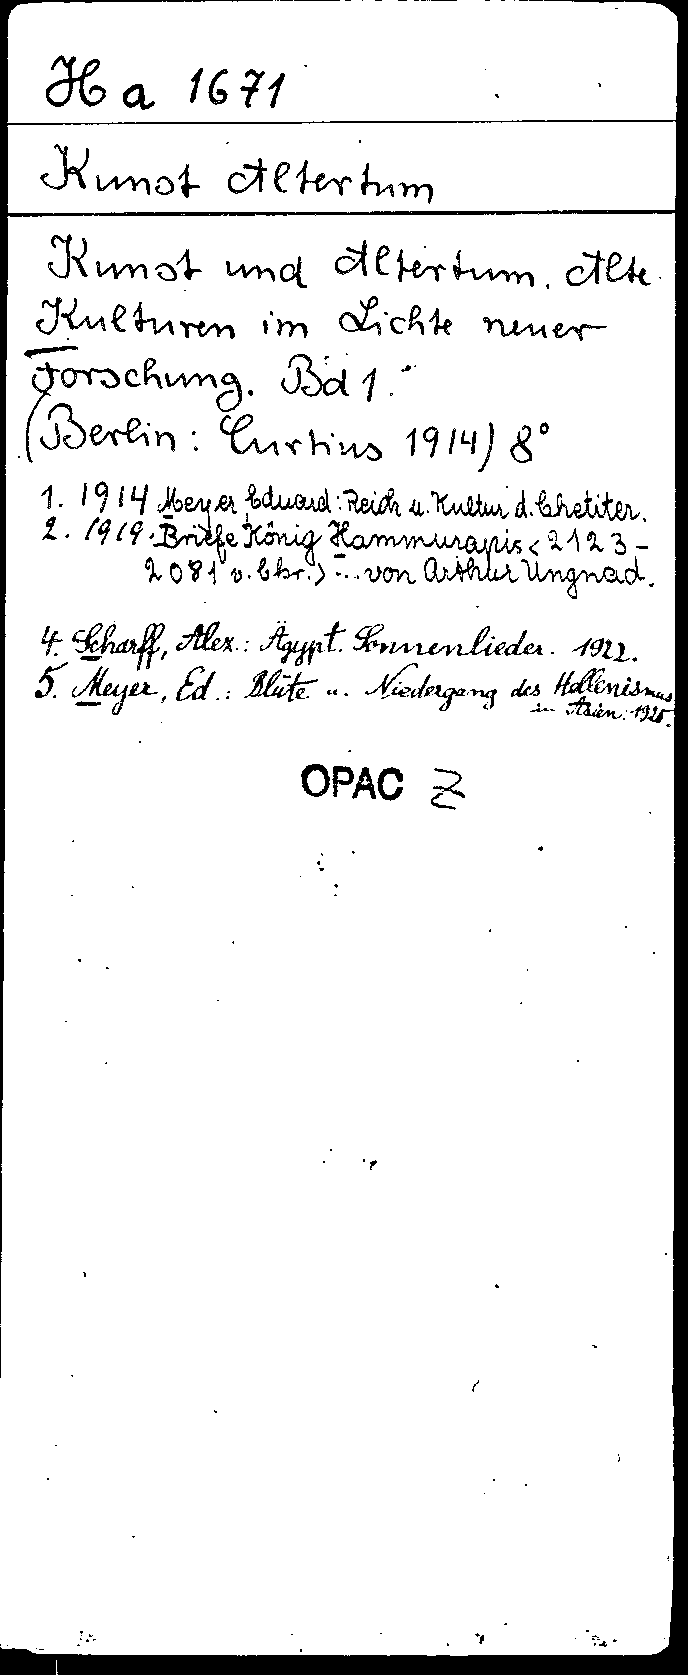 H a 1671
Kunst Altertum
Kunst und Altertum. Alte
Kulturen im Lichte neuer
Forschung. Bd 1.
(Berlin: Curtius 1914) 8°
1. 1914 Meyer Eduard: Reich u. Kultur d. Chetiter.
2. 1919. Briefe König Hammurapis <2123-
2081 v. Chr.> ... von Arthur Ungnad.
4. Scharff, Alex.: Ägypt. Sonnenlieder. 1922.
5. Meyer, Ed.: Blüte u. Niedergang des Hellenismus
in Asien. 1925.
OPAC Z